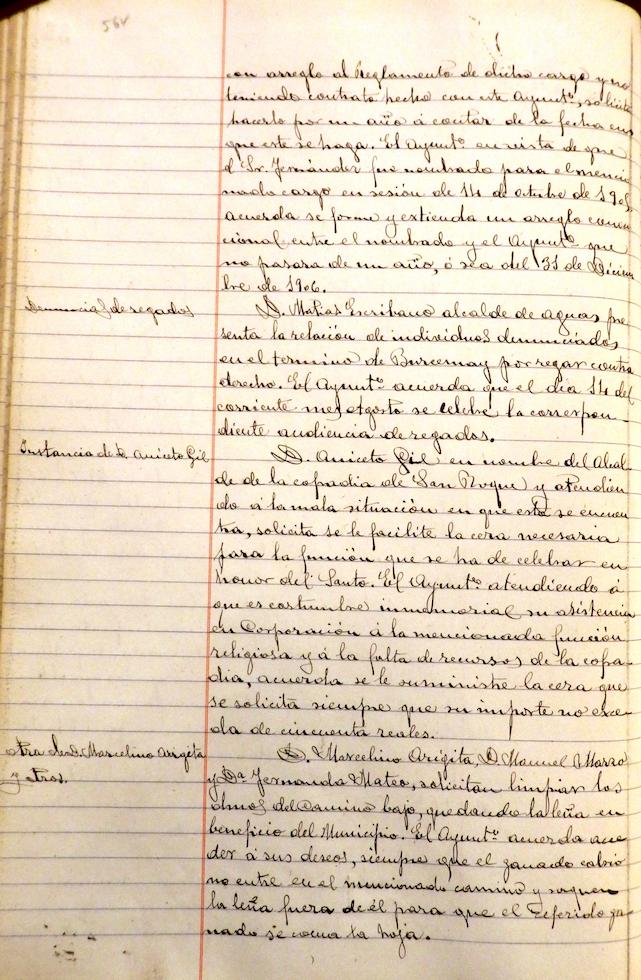 56v
con arreglo al Reglamento de dicho cargo y no
teniendo contrato hecho con este Ayuntº, solicita
hacerlo por un año á contar de la fecha en
que este se haga. El Ayuntº en vista de que
el Sr. Fernández fue nombrado para el mencio
nado cargo en sesión de 14 de octubre de 1905
acuerda se forme y extienda un arreglo conven
cional entre el nombrado y el Ayuntº que
no pasara de un año, ó sea del 31 de Diciem
bre de 1906.
Denuncias de regados
D. Matias Escribano alcalde de aguas pre
senta la relación de individuos denunciados
en el termino de Burcemay por regar contra
derecho. El Ayuntº acuerda que el dia 14 del
corriente mes Agosto se celebre la correspon-
diente audiencia de regados.
Instancia de D. Aniceto Gil
D. Aniceto Gil en nombre del Alcal-
de de la cofradia de San Roque y atendien
do á la mala situación en que esta se encuen
tra, solicita se le facilite la cera necesaria
para la función que se ha de celebrar en
honor del Santo. El Ayuntº atendiendo á
que es costumbre inmemorial su asistencia
en Corporación á la mencionada función
religiosa y á la falta de recursos de la cofra-
dia, acuerda se le suministre la cera que
se solicita siempre que su importe no exce-
da de cincuenta reales.
otra de D. Marcelino Arigita
y otros.
D. Marcelino Arigita, D. Manuel Mazzo
y Dª Fernanda Mateo, solicitan limpiar los
olmos del Camino bajo, quedando la leña en
beneficio del Municipio. El Ayuntº acuerda acce
der á sus deseos, siempre que el ganado cabrio
no entre en el mencionado camino y saquen
la leña fuera de él para que el referido ga-
nado se coma la hoja.